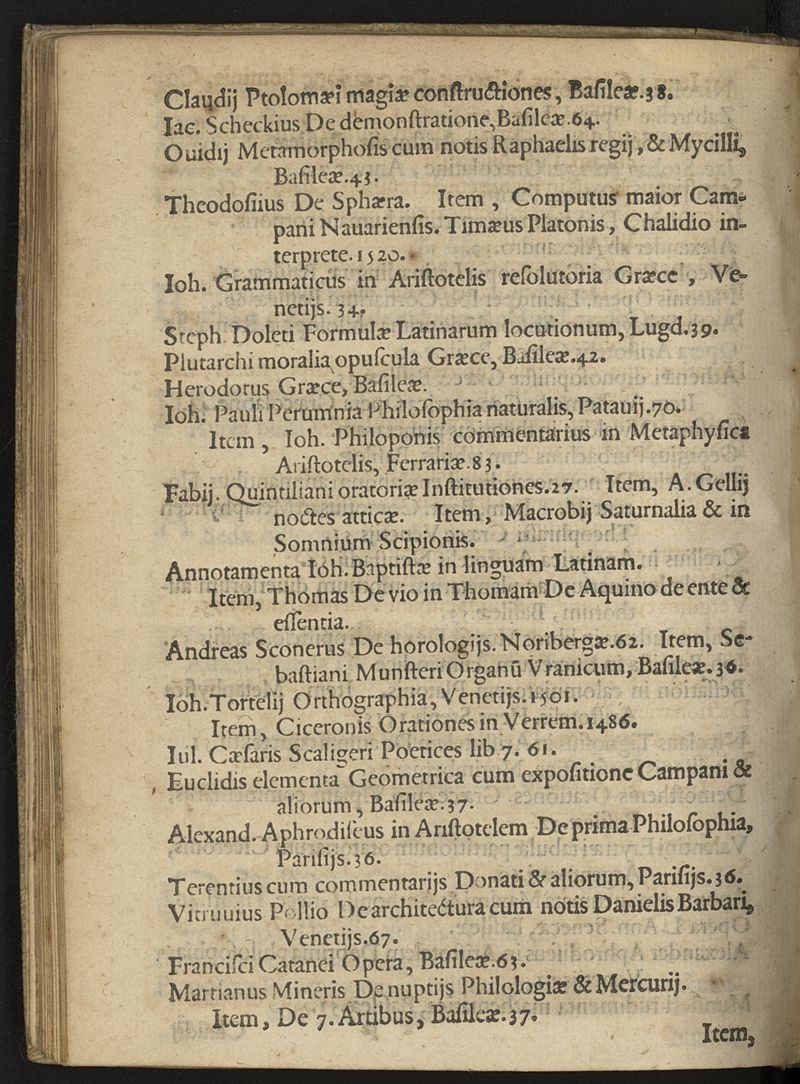 Claudij Ptolomæi magiæ conſtructiones, Baſileæ.38.
Iac. Scheckius De demonſtratione,Baſileæ.64.
Ouidij Metamorphoſis cum notis Raphaelis regij,& Mycilli,
Baſileæ.43.
Theodoſiius De Sphæra. Item, Computus maior Cam-
pani Nauarienſis. Timæus Platonis, Chalidio in-
terprete. 1520.
Ioh. Grammaticus in Ariſtotelis reſolutoria Græce, Ve-
netijs. 34.
Steph Doleti Formulæ Latinarum locutionum, Lugd.39.
Plutarchi moralia opuſcula Græce, Baſileæ.42.
Herodotus Græce, Baſileæ.
Ioh. Pauli Perumnia Philoſophia naturalis, Patauij.70.
Item, Ioh. Philoponis commentarius in Metaphyſica
Ariſtotelis, Ferrariæ.83.
Fabij. Quintiliani oratoriæ Inſtitutiones.27. Item, A. Gellij
noctes atticæ. Item, Macrobij Saturnalia & in
Somnium Scipionis.
Annotamenta Ioh. Baptiſtæ in linguam Latinam.
Item, Thomas De vio in Thomam De Aquino de ente &
eſſentia.
Andreas Sconerus De horologijs. Noribergæ.62. Item, Se-
baſtiani Munſteri Organū Vranicum, Baſileæ.36.
Ioh. Tortelij Orthographia, Venetijs.1501.
Item, Ciceronis Orationes in Verrem.1486.
Iul. Cæſaris Scaligeri Poetices lib 7. 61.
Euclidis elementa Geometrica cum expoſitione Campani &
aliorum, Baſileæ.37.
Alexand. Aphrodiſeus in Ariſtotelem De prima Philoſophia,
Pariſijs.36.
Terentius cum commentarijs Donati & aliorum, Pariſijs.36.
Vitruuius Pollio De architectura cum notis Danielis Barbari,
Venetijs.67.
Franciſci Catanei Opera, Baſileæ.63.
Martianus Mineris De nuptijs Philologiæ & Mercurij.
Item, De 7. Artibus, Baſileæ.37.
Item,